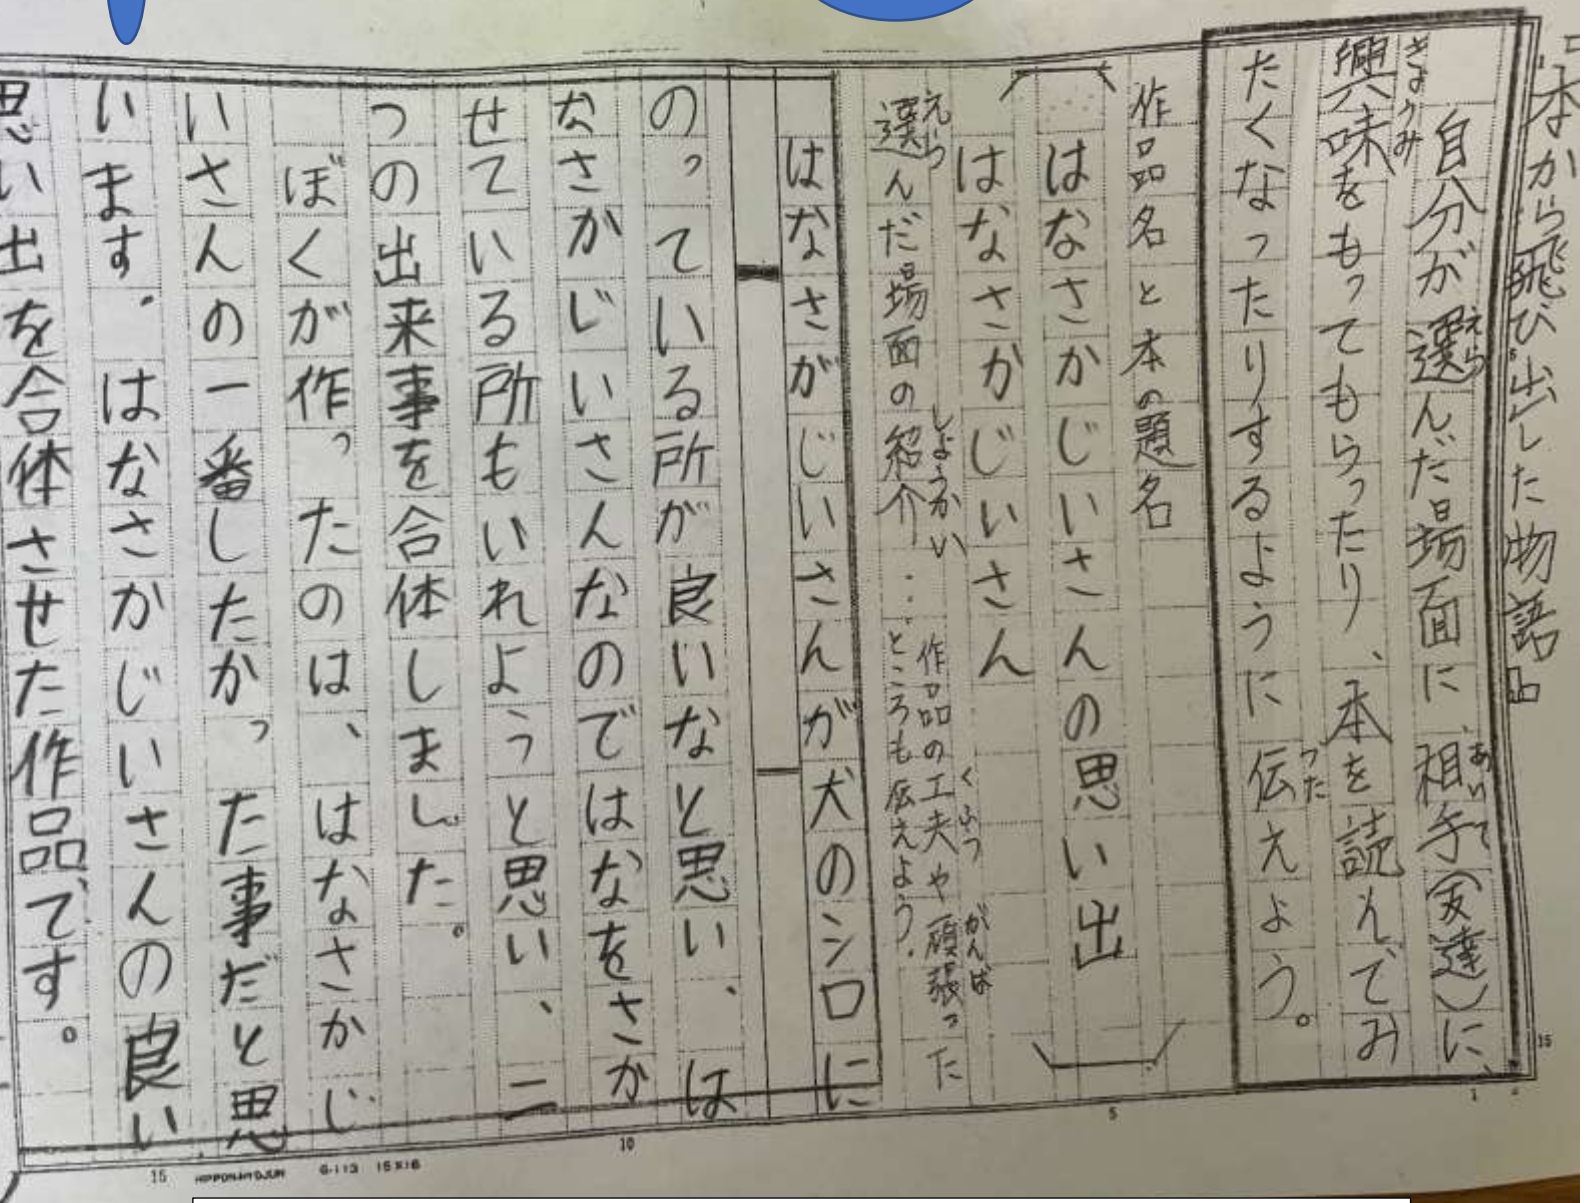 本から飛び出した物語
自分が選んだ場面に、相手(友達)に、
興味をもってもらったり、本を読んでみ
たくなったりするように伝えよう。
作品名と本の題名
はなさかじいさんの思い出
はなさかじいさん
選んだ場面の紹介…作品の工夫や頑張った
ところも伝えよう。
はなさがじいさんが犬のシロに
のっている所が良いなと思い、は
なさかじいさんなのではなをさか
せている所もいれようと思い、二
つの出来事を合体しました。
ぼくが作ったのは、はなさかじ
いさんの一番したかった事だと思
います。はなさかじいさんの良い
思い出を合体させた作品です。
15 HIPPON HYOJUN G-113 15×16
10
5
1
15